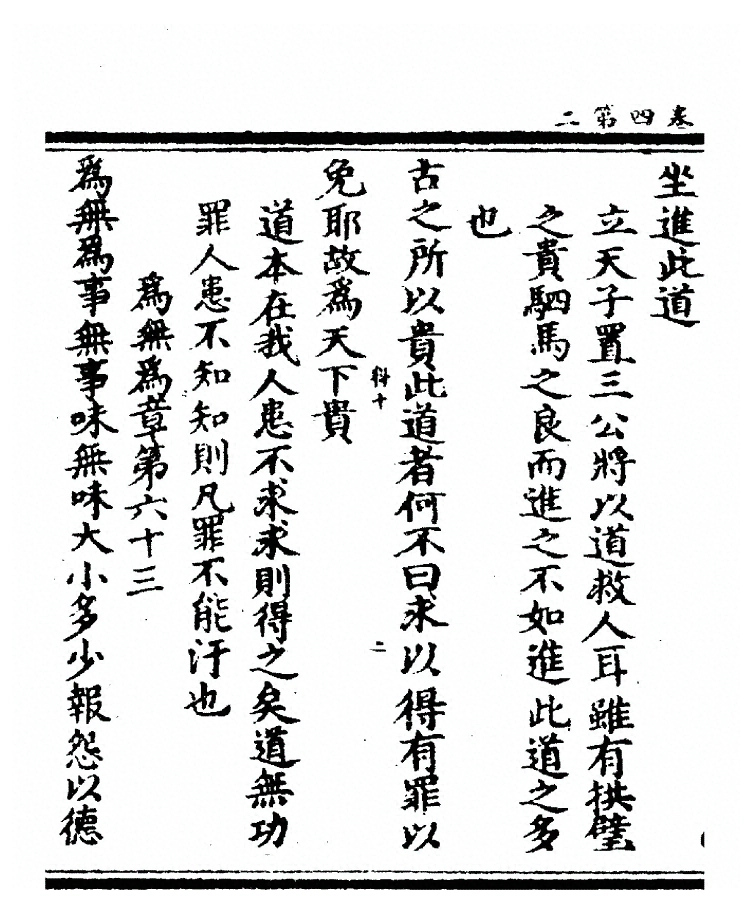 卷四第二
坐進此道
立天子置三公將以道救人耳雖有拱璧
之貴駟馬之良而進之不如進此道之多
也
古之所以貴此道者何不曰求以得有罪以
科十
二
免耶故為天下貴
道本在我人患不求求則得之矣道無功
罪人患不知知則凡罪不能汙也
為無為章第六十三
為無為事無事味無味大小多少報怨以德